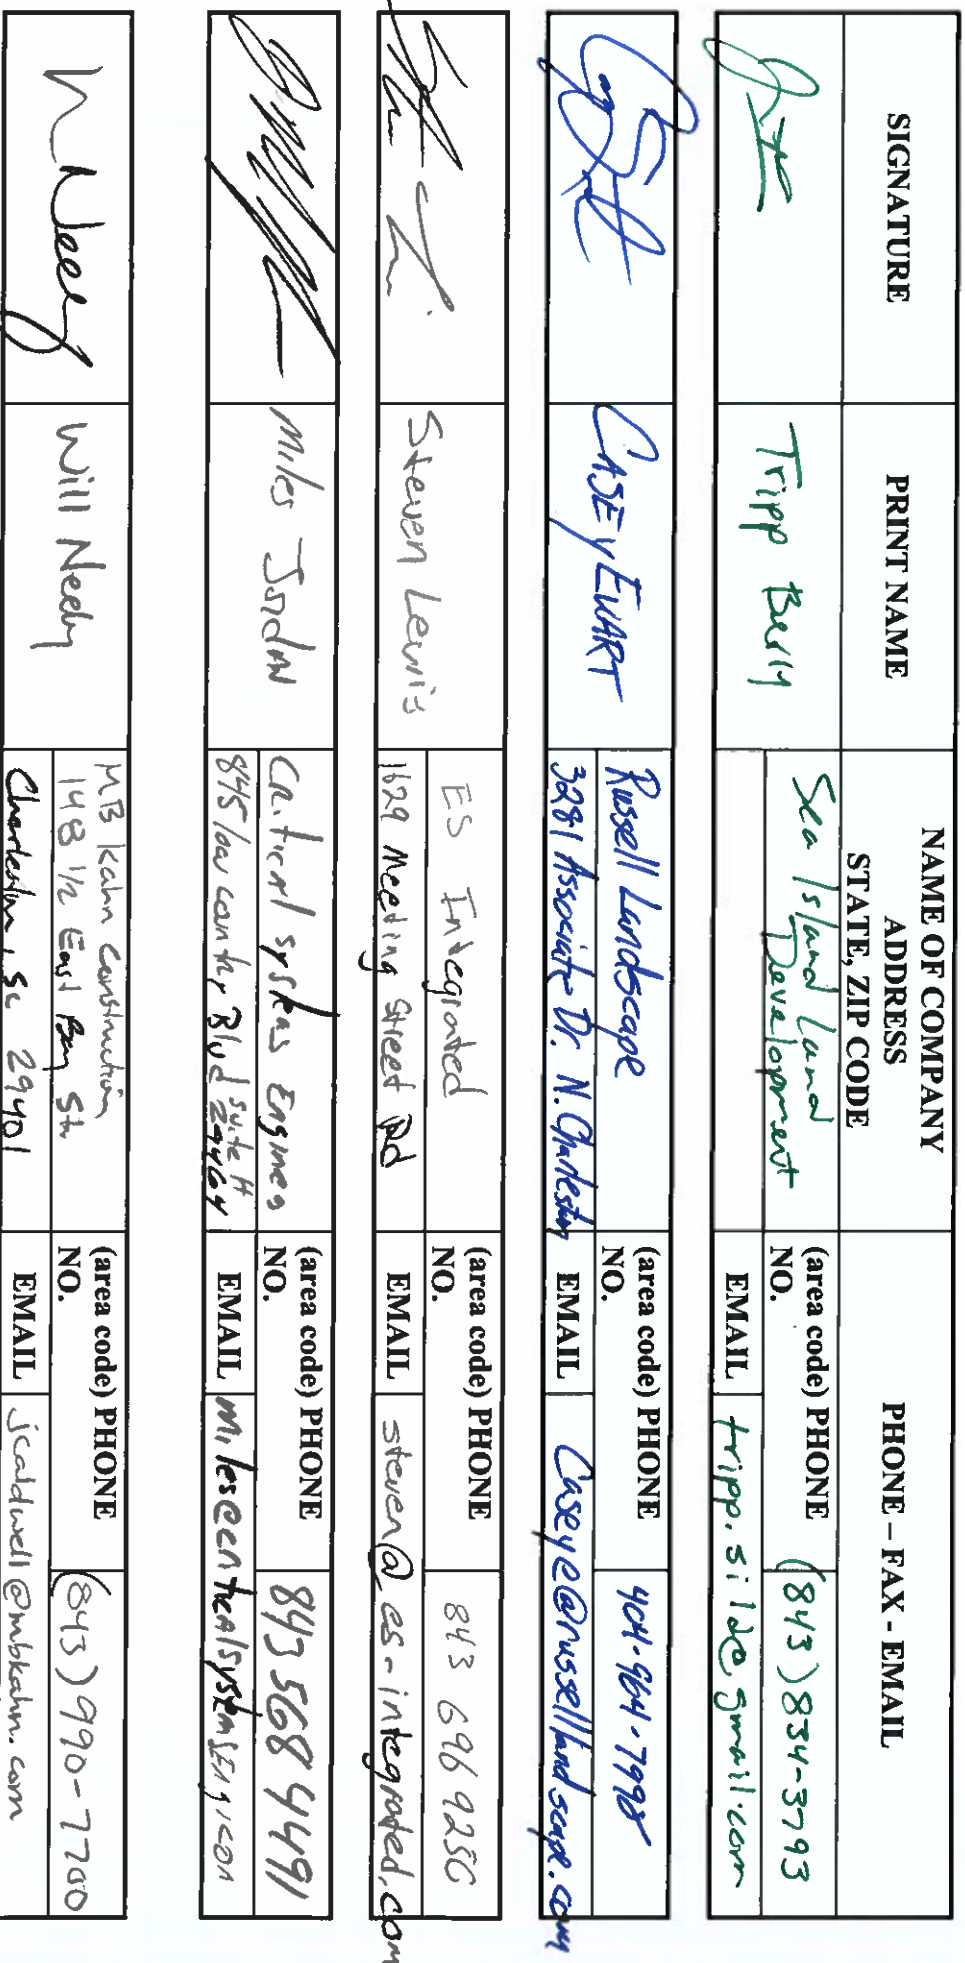 SIGNATURE
PRINT NAME
NAME OF COMPANY
ADDRESS
STATE, ZIP CODE
PHONE – FAX - EMAIL
Tripp Berly
Sea Island Land
Development
(area code) PHONE
NO.
(843) 834-3793
EMAIL
tripp.sild@gmail.com
CASEY EWART
Russell Landscape
3281 Associate Dr. N. Charleston
(area code) PHONE
NO.
404-964-7998
EMAIL
Caseye@russelllandscape.com
Steven Lewis
ES Integrated
1629 Meeting Street Rd
(area code) PHONE
NO.
843 696 9256
EMAIL
steven@es-integrated.com
Miles Jordan
Critical systems Engineers
845 low country Blvd suite H
29464
(area code) PHONE
NO.
843 568 4491
EMAIL
W Neely
Will Neely
MB Kahn Construction
148 1/2 East Bay St
Charleston, SC 29401
(area code) PHONE
NO.
(843) 990-7700
EMAIL
jcaldwell@mbkahn.com